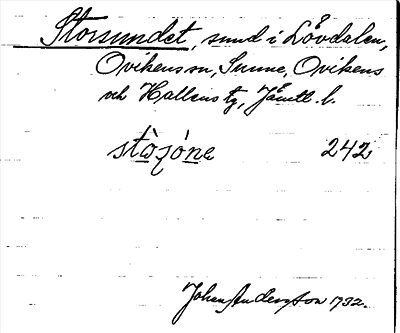 Storsundet, sund i Lövdalen,
Ovikens sn, Sunne, Ovikens
och Hallens tg, Jämtl. l.
stòsóne 242
Johan Anderson 1932.